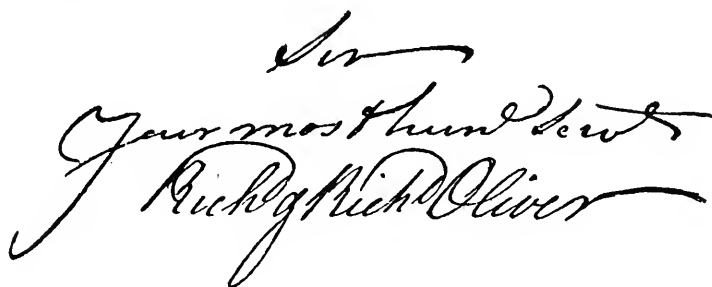 Sir
Your most hum^l Serv^t
Rich^d & Rich^d Oliver